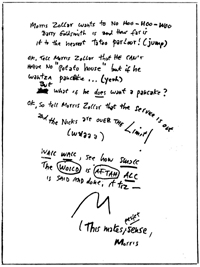 Morris Zollar wants to no Hoo-Hoo-WHO
Barry Goldsmith is and how far is
it to the nearest Tatoo parlour! (jump)
OK, tell Morris Zollar that HE CAN'T
have no "Potato house" but if he
wantza pancake... (yeah)
But what if he does want a pancake?
OK, so tell Morris Zollar that the server is out
and the Nicks are OVER THE Limit!
WALL WALL, see how
The WORLD is AFTAH ALL
is SAID AND done, it
M
(This makes perfect sense,
Morris